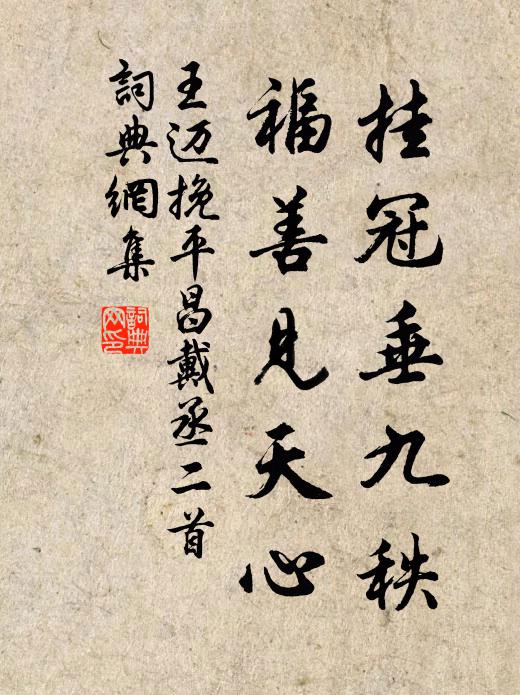 挂冠垂九秩
福善见天心
王迈挽平昌戴丞二首
詞典網集
詞典网印